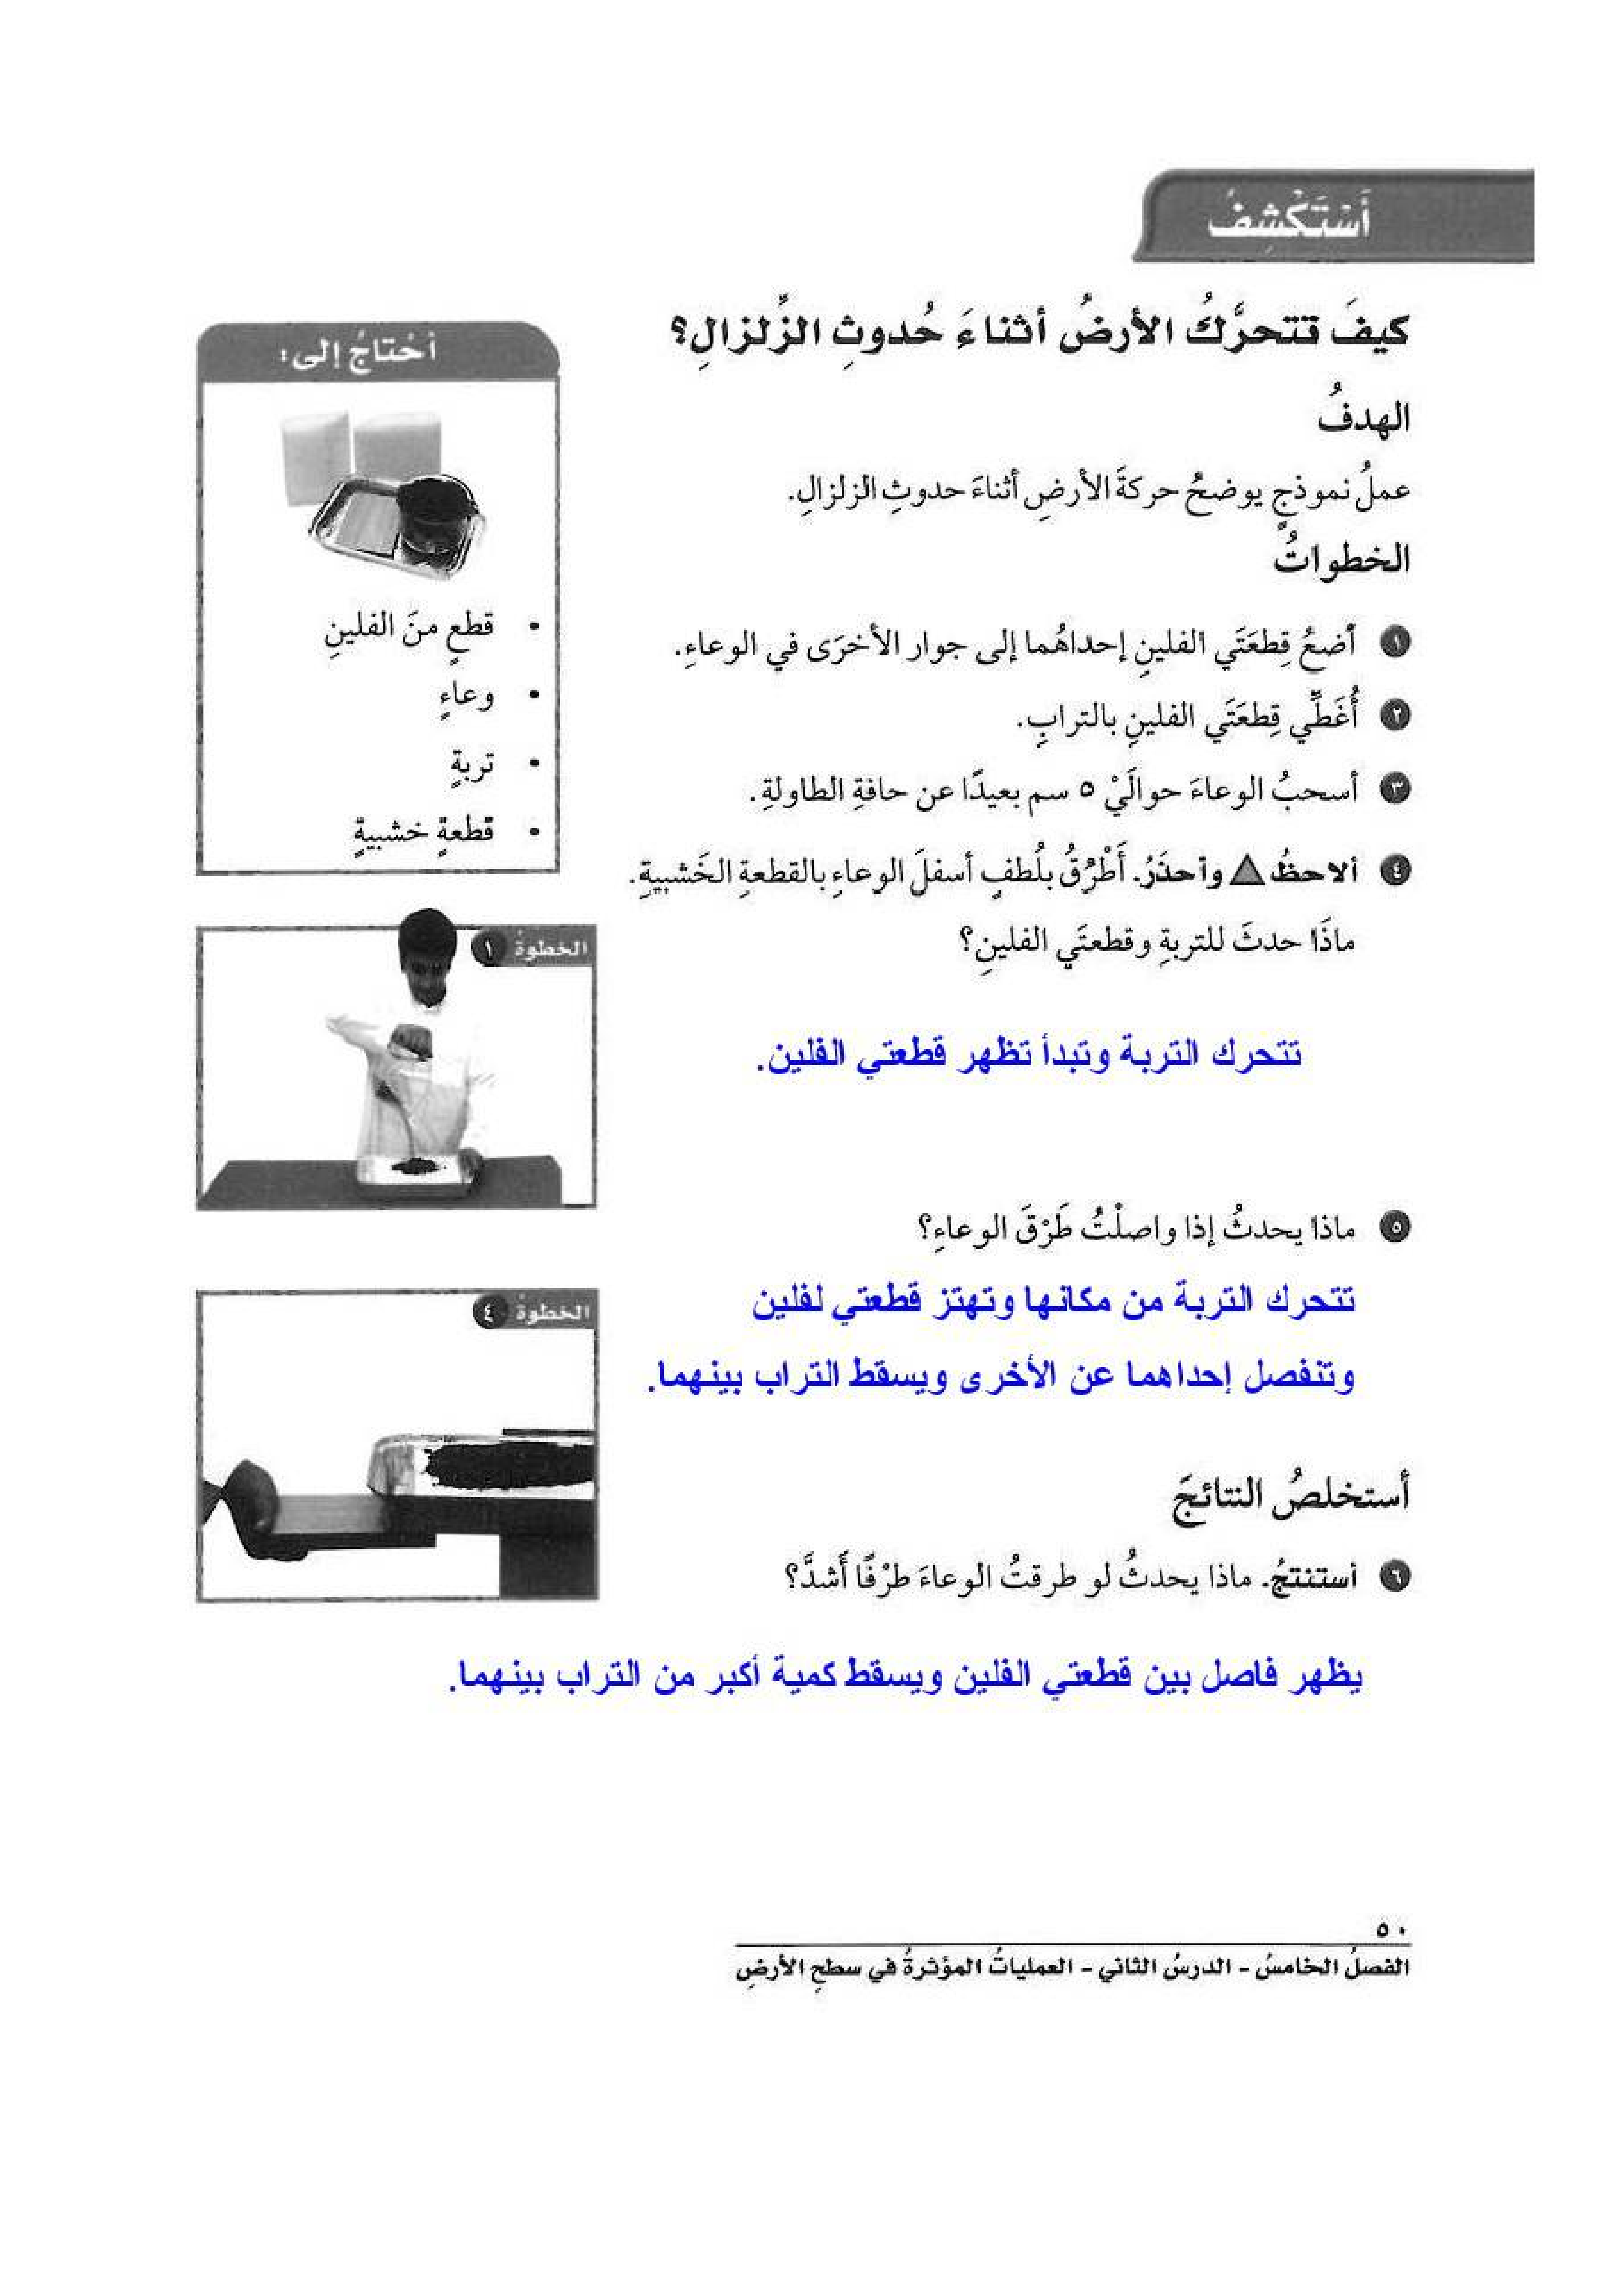 أَسْتَكْشِفُ
كيفَ تتحرَّكُ الأرضُ أثناءَ حُدوثِ الزِّلزالِ؟
الهدفُ
عملُ نموذجٍ يوضحُ حركةَ الأرضِ أثناءَ حدوثِ الزلزالِ.
الخطواتُ
١ أضعُ قِطعَتَي الفلينِ إحداهُما إلى جوار الأخرَى في الوعاءِ.
٢ أُغَطِّي قِطعَتَي الفلينِ بالترابِ.
٣ أسحبُ الوعاءَ حوالَيْ ٥ سم بعيدًا عن حافةِ الطاولةِ.
٤ ألاحظُ وأحذَرُ. أَطْرُقُ بلُطفٍ أسفلَ الوعاءِ بالقطعةِ الخَشبيةِ.
ماذَا حدثَ للتربةِ وقطعتَي الفلينِ؟
تتحرك التربة وتبدأ تظهر قطعتي الفلين.
٥ ماذا يحدثُ إذا واصلْتُ طَرْقَ الوعاءِ؟
تتحرك التربة من مكانها وتهتز قطعتي لفلين
وتنفصل إحداهما عن الأخرى ويسقط التراب بينهما.
أستخلصُ النتائجَ
٦ أستنتجُ. ماذا يحدثُ لو طرقتُ الوعاءَ طرْقًا أشدَّ؟
يظهر فاصل بين قطعتي الفلين ويسقط كمية أكبر من التراب بينهما.
أحْتاجُ إلى:
• قطعٍ منَ الفلينِ
• وعاءٍ
• تربةٍ
• قطعةٍ خشبيةٍ
الخطوةُ ١
الخطوةُ ٤
٥٠
الفصلُ الخامسُ - الدرسُ الثاني - العملياتُ المؤثرةُ في سطحِ الأرضِ